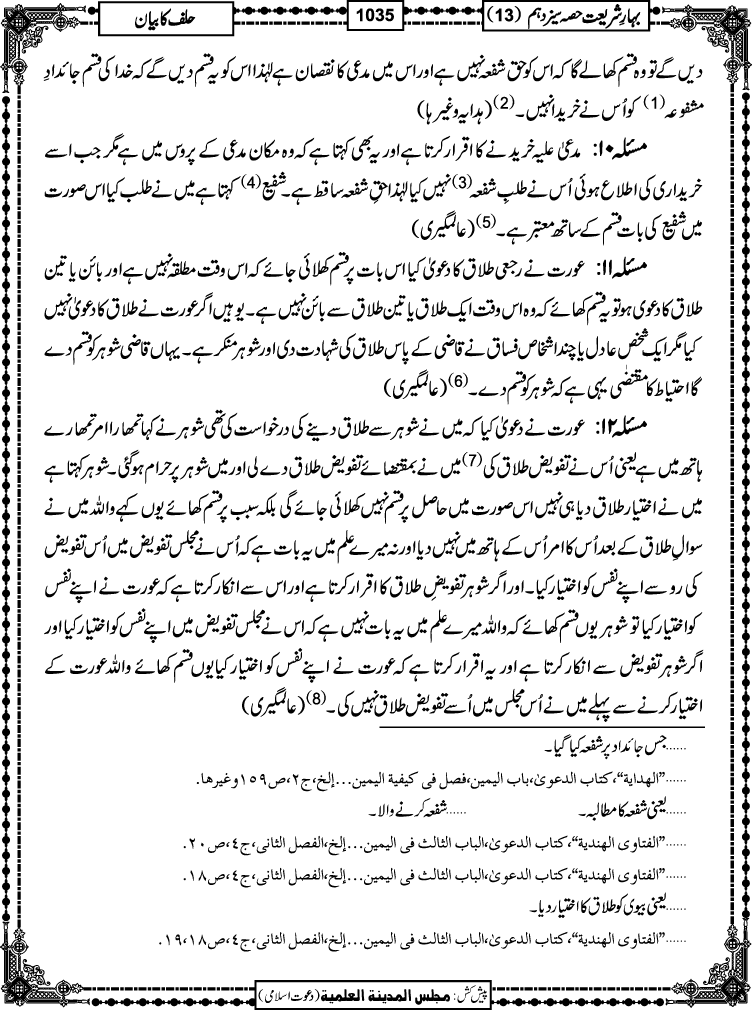 بہارِشریعت حصہ سیزدہم (13)
1035
حلف کا بیان
دیں گے تو وہ قسم کھالے گا کہ اس کو حق شفعہ نہیں ہے اور اس میں مدعی کا نقصان ہے لہٰذا اس کو یہ قسم دیں گے کہ خدا کی قسم جائدادِ
مشفوعہ (1) کو اُس نے خریدا نہیں۔ (2) (ہدایہ وغیرہا)
مسئلہ ۱۰: مدعیٰ علیہ خریدنے کا اقرار کرتا ہے اور یہ بھی کہتا ہے کہ وہ مکان مدعی کے پروس میں ہے مگر جب اسے
خریداری کی اطلاع ہوئی اُس نے طلبِ شفعہ (3) نہیں کیا لہٰذا حقِ شفعہ ساقط ہے۔ شفیع (4) کہتا ہے میں نے طلب کیا اس صورت
میں شفیع کی بات قسم کے ساتھ معتبر ہے۔ (5) (عالمگیری)
مسئلہ ۱۱: عورت نے رجعی طلاق کا دعویٰ کیا اس بات پر قسم کھلائی جائے کہ اس وقت مطلقہ نہیں ہے اور بائن یا تین
طلاق کا دعوی ہو تو یہ قسم کھائے کہ وہ اس وقت ایک طلاق یا تین طلاق سے بائن نہیں ہے۔ یوہیں اگر عورت نے طلاق کا دعویٰ نہیں
کیا مگر ایک شخص عادل یا چند اشخاص فساق نے قاضی کے پاس طلاق کی شہادت دی اور شوہر منکر ہے۔ یہاں قاضی شوہر کو قسم دے
گا احتیاط کا مقتضٰی یہی ہے کہ شوہر کو قسم دے۔ (6) (عالمگیری)
مسئلہ ۱۲: عورت نے دعویٰ کیا کہ میں نے شوہر سے طلاق دینے کی درخواست کی تھی شوہر نے کہا تمھارا امر تمھارے
ہاتھ میں ہے یعنی اُس نے تفویض طلاق کی (7) میں نے بمقتضائے تفویض طلاق دے لی اور میں شوہر پر حرام ہوگئی۔ شوہر کہتا ہے
میں نے اختیار طلاق دیا ہی نہیں اس صورت میں حاصل پر قسم نہیں کھلائی جائے گی بلکہ سبب پر قسم کھائے یوں کہے واللہ میں نے
سوالِ طلاق کے بعد اُس کا امر اُس کے ہاتھ میں نہیں دیا اور نہ میرے علم میں یہ بات ہے کہ اُس نے مجلس تفویض میں اُس تفویض
کی رو سے اپنے نفس کو اختیار کیا۔ اور اگر شوہر تفویضِ طلاق کا اقرار کرتا ہے اور اس سے انکار کرتا ہے کہ عورت نے اپنے نفس
کو اختیار کیا تو شوہر یوں قسم کھائے کہ واللہ میرے علم میں یہ بات نہیں ہے کہ اس نے مجلس تفویض میں اپنے نفس کو اختیار کیا اور
اگر شوہر تفویض سے انکار کرتا ہے اور یہ اقرار کرتا ہے کہ عورت نے اپنے نفس کو اختیار کیا یوں قسم کھائے واللہ عورت کے
اختیار کرنے سے پہلے میں نے اُس مجلس میں اُسے تفویض طلاق نہیں کی۔ (8) (عالمگیری)
......جس جائداد پر شفعہ کیا گیا۔
......”الهداية“، كتاب الدعوىٰ، باب اليمين، فصل فى كيفية اليمين...إلخ، ج٢، ص١٥٩ وغيرها.
......یعنی شفعہ کا مطالبہ۔ ......شفعہ کرنے والا۔
......”الفتاوى الهندية“، كتاب الدعوىٰ، الباب الثالث فى اليمين...إلخ، الفصل الثانى، ج٤، ص٢٠.
......”الفتاوى الهندية“، كتاب الدعوىٰ، الباب الثالث فى اليمين...إلخ، الفصل الثانى، ج٤، ص١٨.
......یعنی بیوی کو طلاق کا اختیار دیا۔
......”الفتاوى الهندية“، كتاب الدعوىٰ، الباب الثالث فى اليمين...إلخ، الفصل الثانى، ج٤، ص١٨، ١٩.
پیش کش: مجلس المدينة العلمية (دعوت اسلامی)